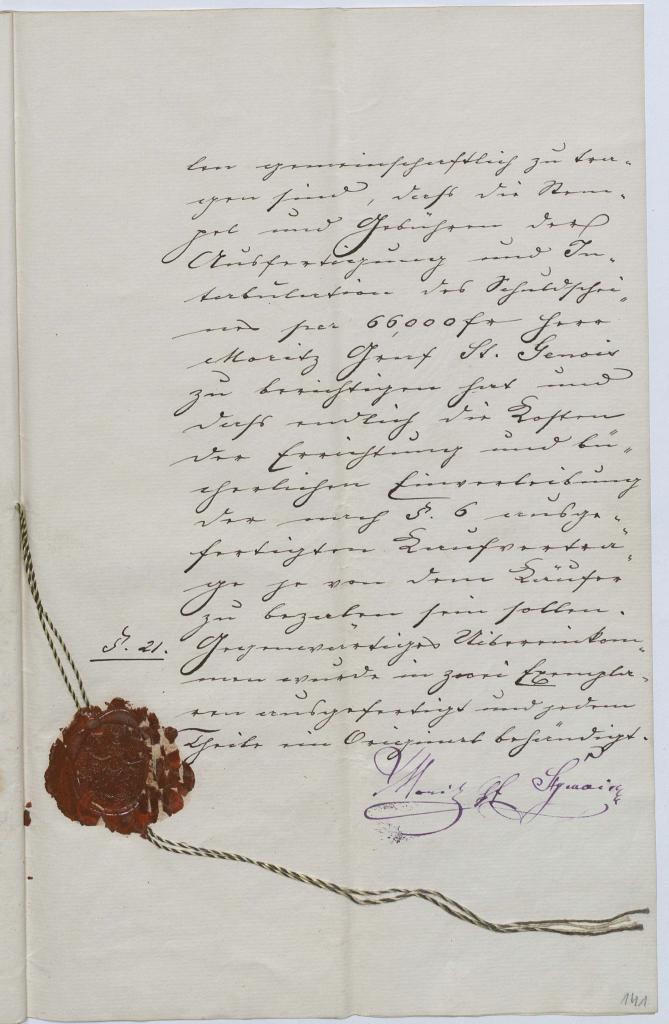 len gemeinschaftlich zu tra-
gen sind, daſs die Stem-
pel und Gebühren der
Ausfertigung und In-
tabulation des Schuldschei-
nes per 66,000 fr Herr
Moritz Graf St. Genois
zu berichtigen hat und
daſs endlich die Kosten
der Errichtung und bü-
cherlichen Einverleibung
der nach §. 6 ausge-
fertigten Kaufverträ-
ge je von dem Käufer
zu bezalen sein sollen.
§. 21. Gegenwärtiges Uibereinkom-
men wurde in zwei Exempla-
ren ausgefertigt und jedem
Theile ein Original behändigt.
Moritz Gf
141